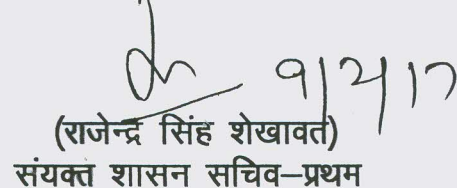 9/2/17
(राजेन्द्र सिंह शेखावत)
संयुक्त शासन सचिव–प्रथम